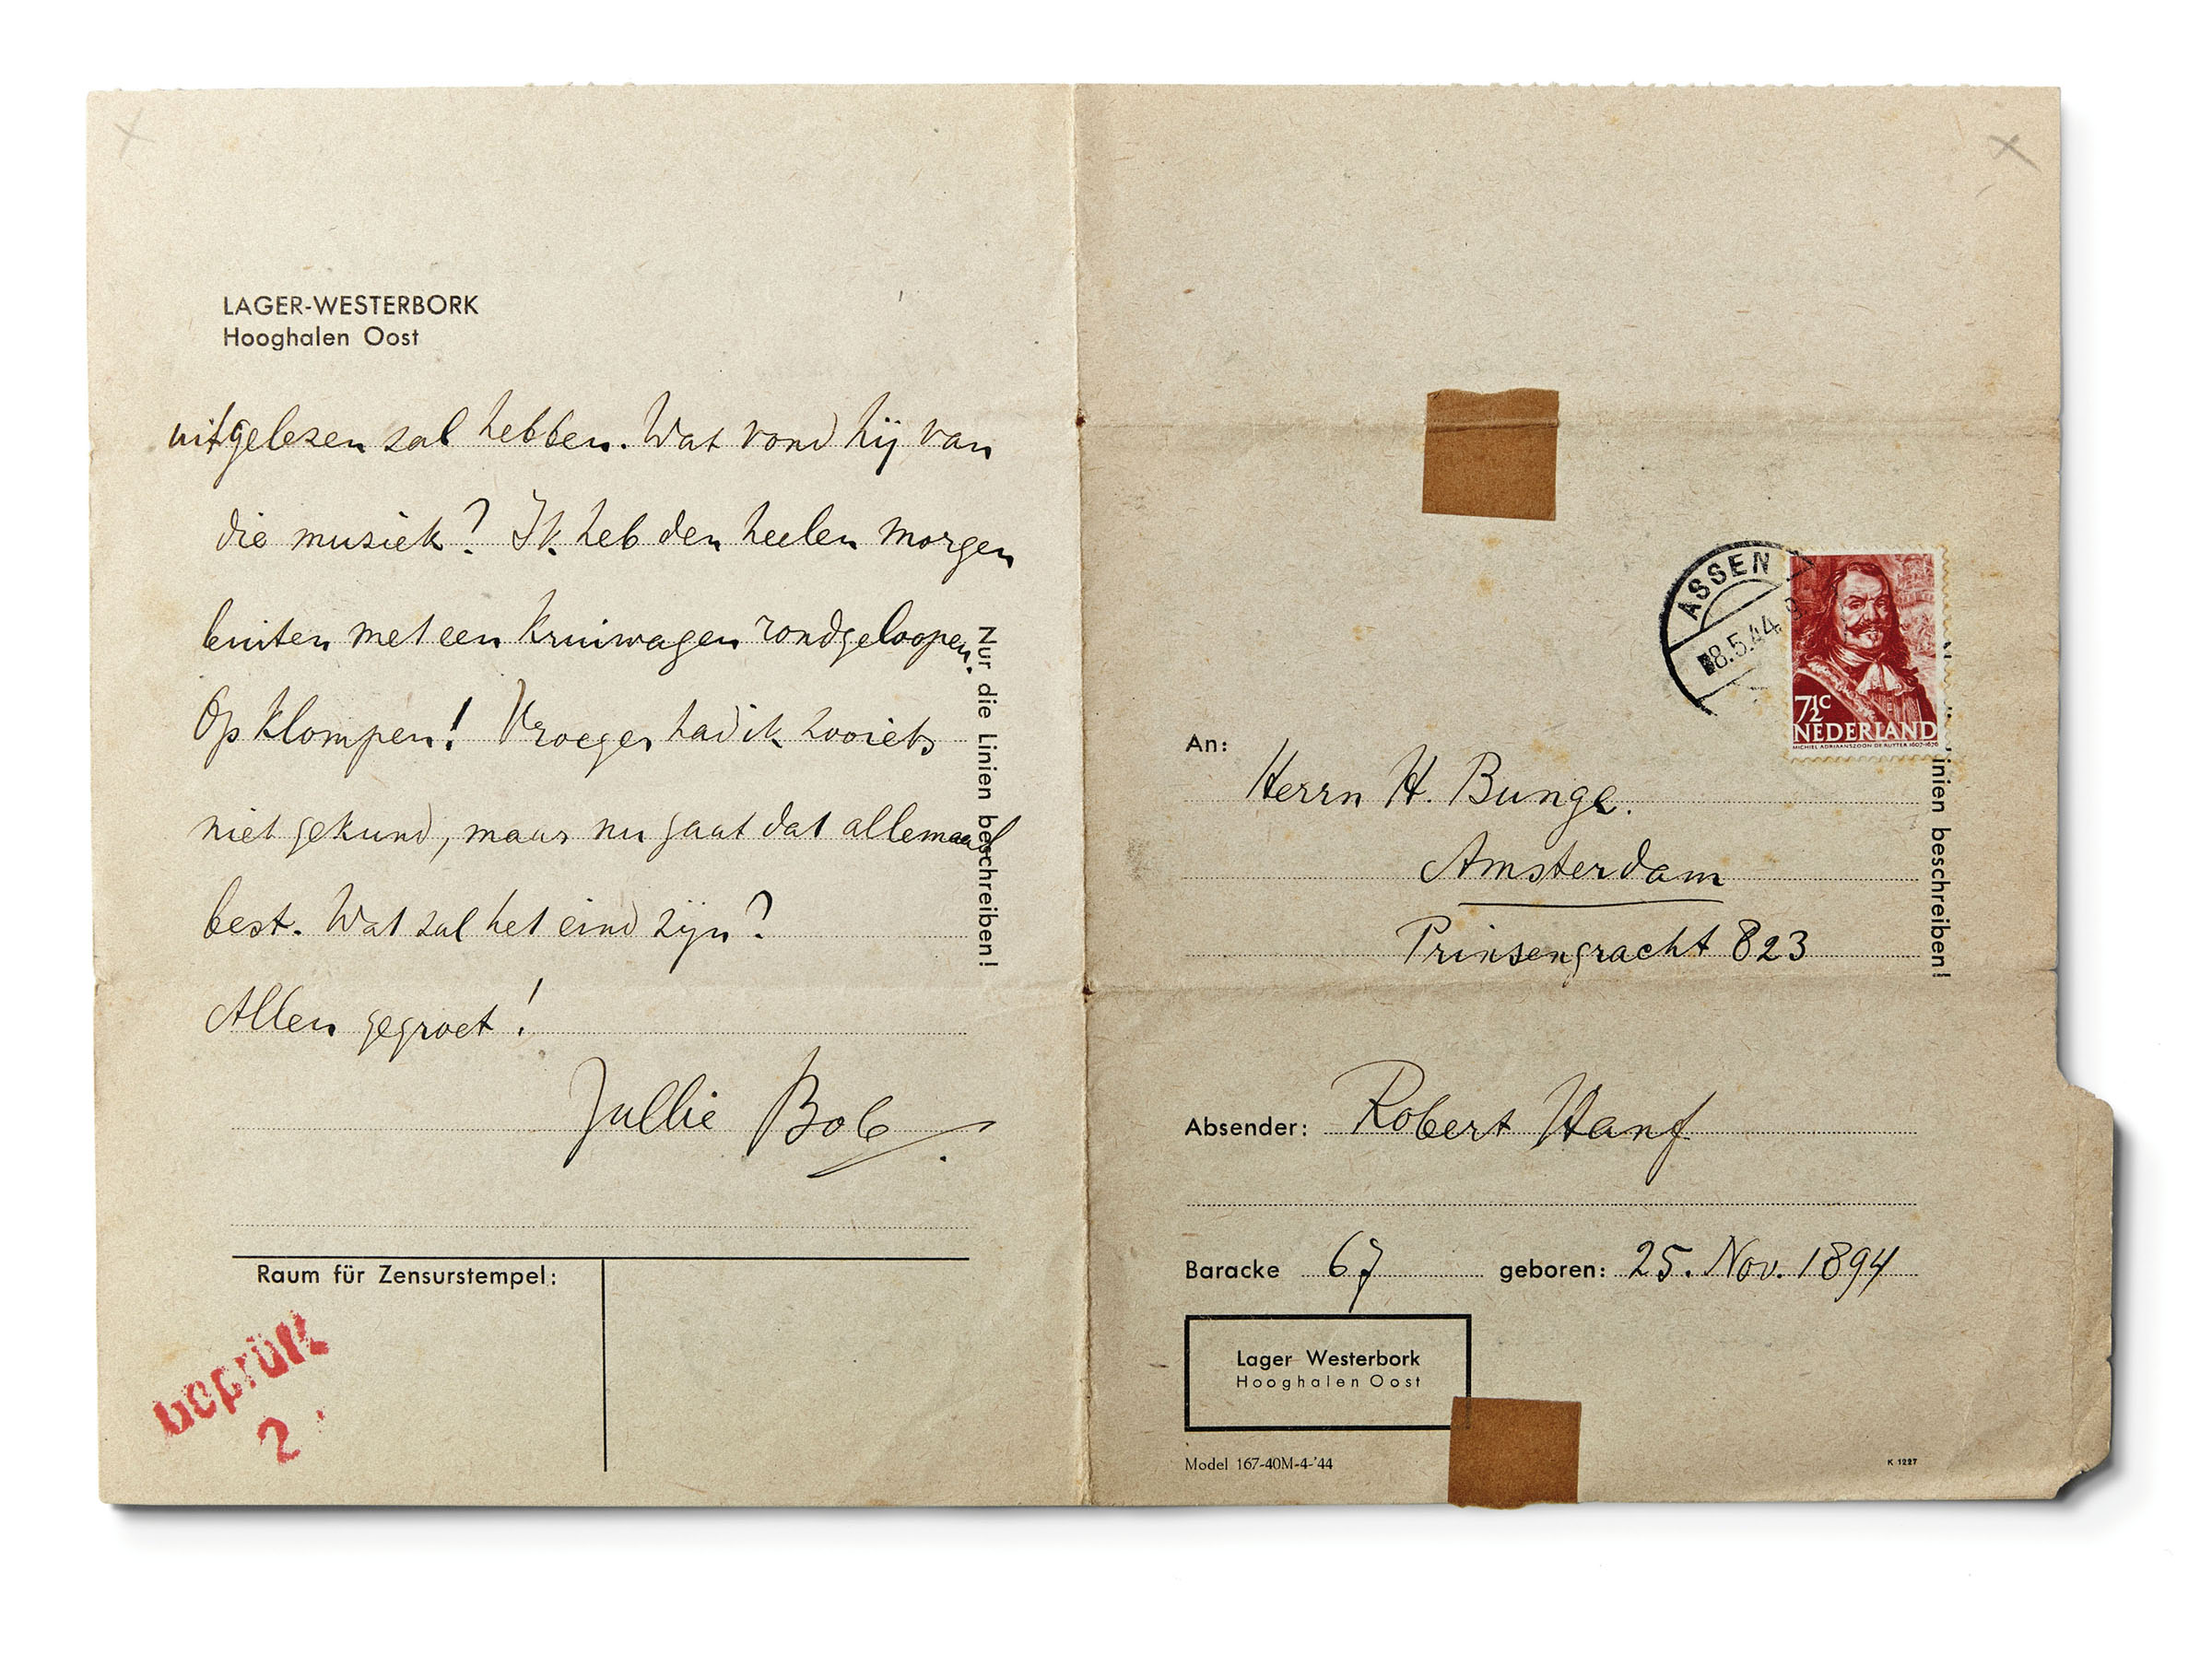 LAGER-WESTERBORK
Hooghalen Oost
uitgelezen zal hebben. Wat vond hij van
die muziek? Ik heb den heelen morgen
buiten met een kruiwagen rondgeloopen.
Op klompen! Vroeger had ik zooiets
niet gekund, maar nu gaat dat allemaal
best. Wat zal het eind zijn?
Allen gegroet!
Jullie Bob
Nur die Linien beschreiben!
Raum für Zensurstempel:
Geprüft
2
ASSEN
8.5.44
7½c
NEDERLAND
MICHIEL ADRIAANSZOON DE RUYTER 1607-1676
An:
Herrn H. Bunge.
Amsterdam
Prinsengracht 823
inien beschreiben!
Absender: Robert Hanf
Baracke 67 geboren: 25. Nov. 1894
Lager Westerbork
Hooghalen Oost
Model 167-40M-4-'44
K 1227